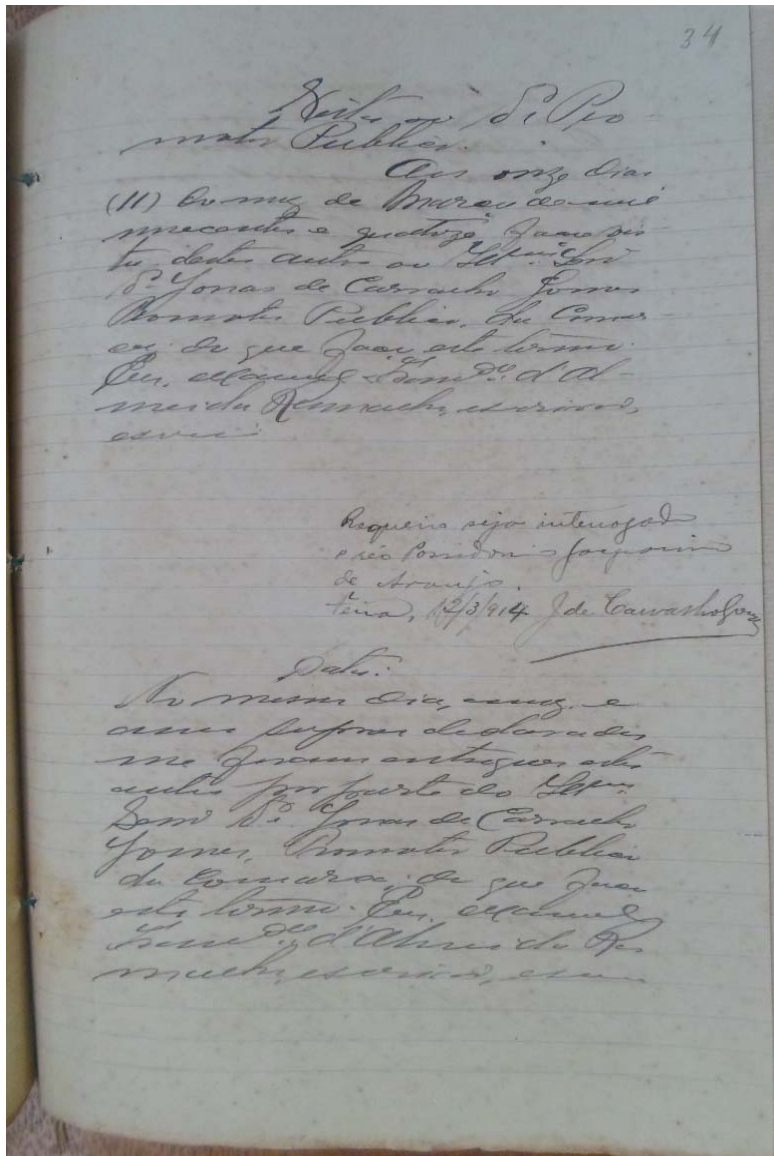 34
Vista ao Dr. Pro-
motor Publico.
Aos onze dias
(11) do mez de Março de mil
novecentos e quatorze, faço vis-
ta destes autos ao Illmo. Snr.
Dr. Jonas de Carvalho Gomes
Promotor Publico, da Comar-
ca, do que faço este termo.
Eu, Manuel d'Al-
meida escrivão,
escrevi
Requeiro seja interrogado
o réo Possidonio Joaquim
de Araujo.
Feira, 12/3/914 J de Carvalho Gomes
Data:
No mesmo dia, mez e
anno supra declarados
me foram entregues estes
autos por parte do Illmo.
Senr. Dr. Jonas de Carvalho
Gomes, Promotor Publico
da Comarca, do que faço
este termo. Eu, Manuel
d'Almeida
escrivão,